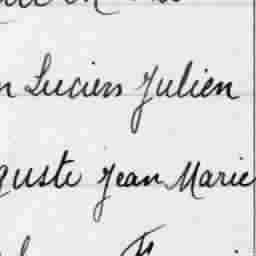 n Lucien Julien
guste Jean Marie